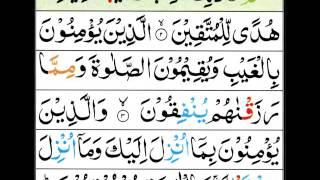 هُدًى لِّلْمُتَّقِيْنَ ۝٢ الَّذِيْنَ يُؤْمِنُوْنَ
بِالْغَيْبِ وَيُقِيْمُوْنَ الصَّلٰوةَ وَمِمَّا
رَزَقْنٰهُمْ يُنْفِقُوْنَ ۝٣ وَالَّذِيْنَ
يُؤْمِنُوْنَ بِمَآ اُنْزِلَ اِلَيْكَ وَمَآ اُنْزِلَ